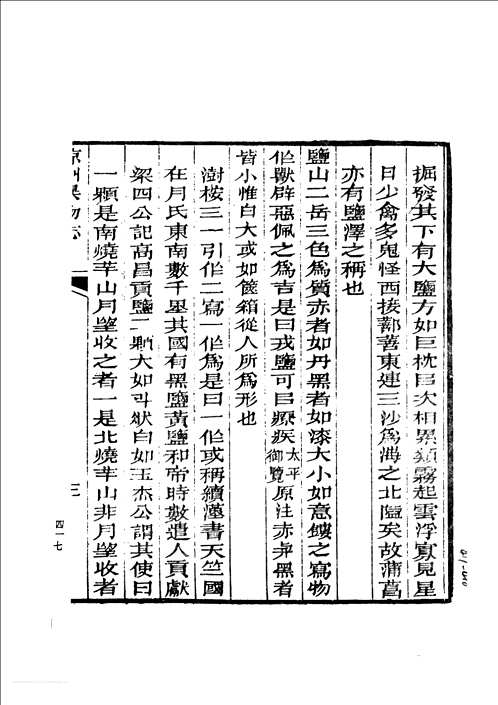 掘發其下有大鹽方如巨枕以次相累類霧起雲浮寡見星
日少禽多鬼怪西接鄯善東連三沙爲海之北隘矣故蒲菖
亦有鹽澤之稱也
鹽山二岳三色爲質赤者如丹黑者如漆大小如意鏤之寫物
作獸辟惡佩之爲吉是曰戎鹽可以療疾太平御覽原注赤弁黑者
皆小惟白大或如篋箱從人所爲形也
澍按三一引作二寫一作爲是曰一作或稱續漢書天竺國
在月氏東南數千里其國有黑鹽黃鹽和帝時數遣人貢獻
梁四公記高昌貢鹽二顆大如斗狀白如玉杰公謂其使曰
一顆是南燒羊山月望收之者一是北燒羊山非月望收者
涼州異物志
三
四一七